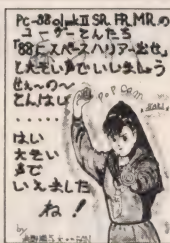 Pc-88 mkII SR.FR.MR.の
ユーザーさんたち
「88にスペースハリアー出せ」
と大きい声でいいましょう
せぇ〜の〜
.....
はい
大きい
声で
いえました
ね!
POP COM
by